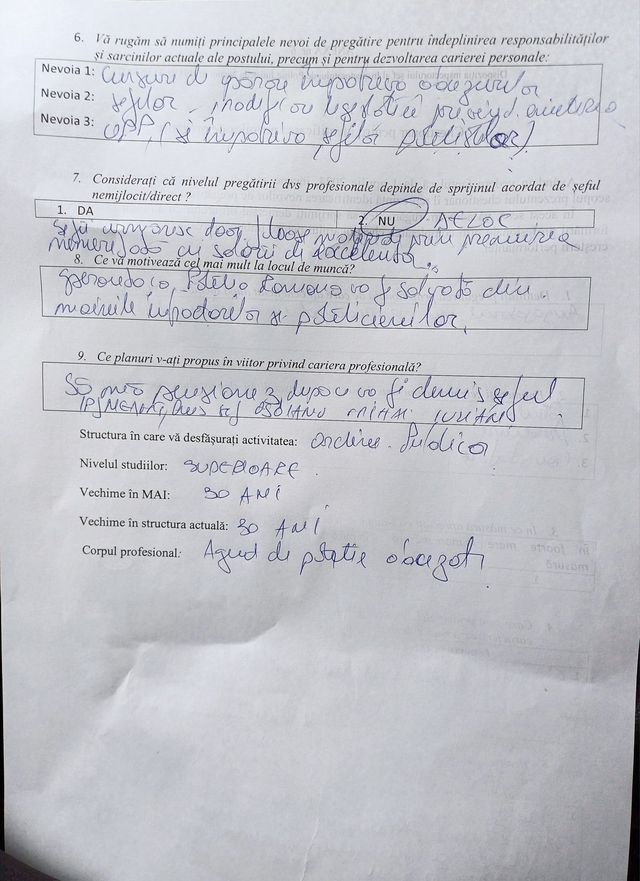 6. Vă rugăm să numiți principalele nevoi de pregătire pentru îndeplinirea responsabilităților
și sarcinilor actuale ale postului, precum și pentru dezvoltarea carierei personale:
Nevoia 1: Cursuri de apărare împotriva abuzurilor
Nevoia 2: șefilor, modificare legislativă privind
Nevoia 3: (și împotriva șefilor polițiștilor)
7. Considerați că nivelul pregătirii dvs profesionale depinde de sprijinul acordat de șeful
nemijlocit/direct ?
1. DA
2. NU DELOC.
Șefii urmăresc doar prin premierea
cu salarii de excelență.
8. Ce vă motivează cel mai mult la locul de muncă?
Speranța ca, Poliția Romana va fi salvată din
mainile impostorilor și politicienilor.
9. Ce planuri v-ați propus în viitor privind cariera profesională?
Să mă pensionez, dupa ce va fi demis șeful
Structura în care vă desfășurați activitatea: Ordine Publica
Nivelul studiilor: SUPERIOARE.
Vechime în MAI: 30 ANI
Vechime în structura actuală: 30 ANI
Corpul profesional: Agent de poliție